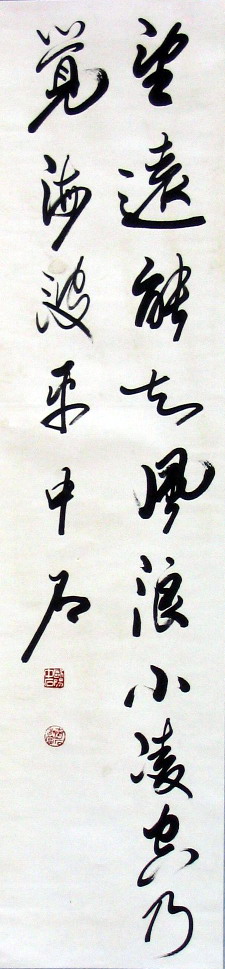 望远能知风浪小凌空乃
觉海波平中石